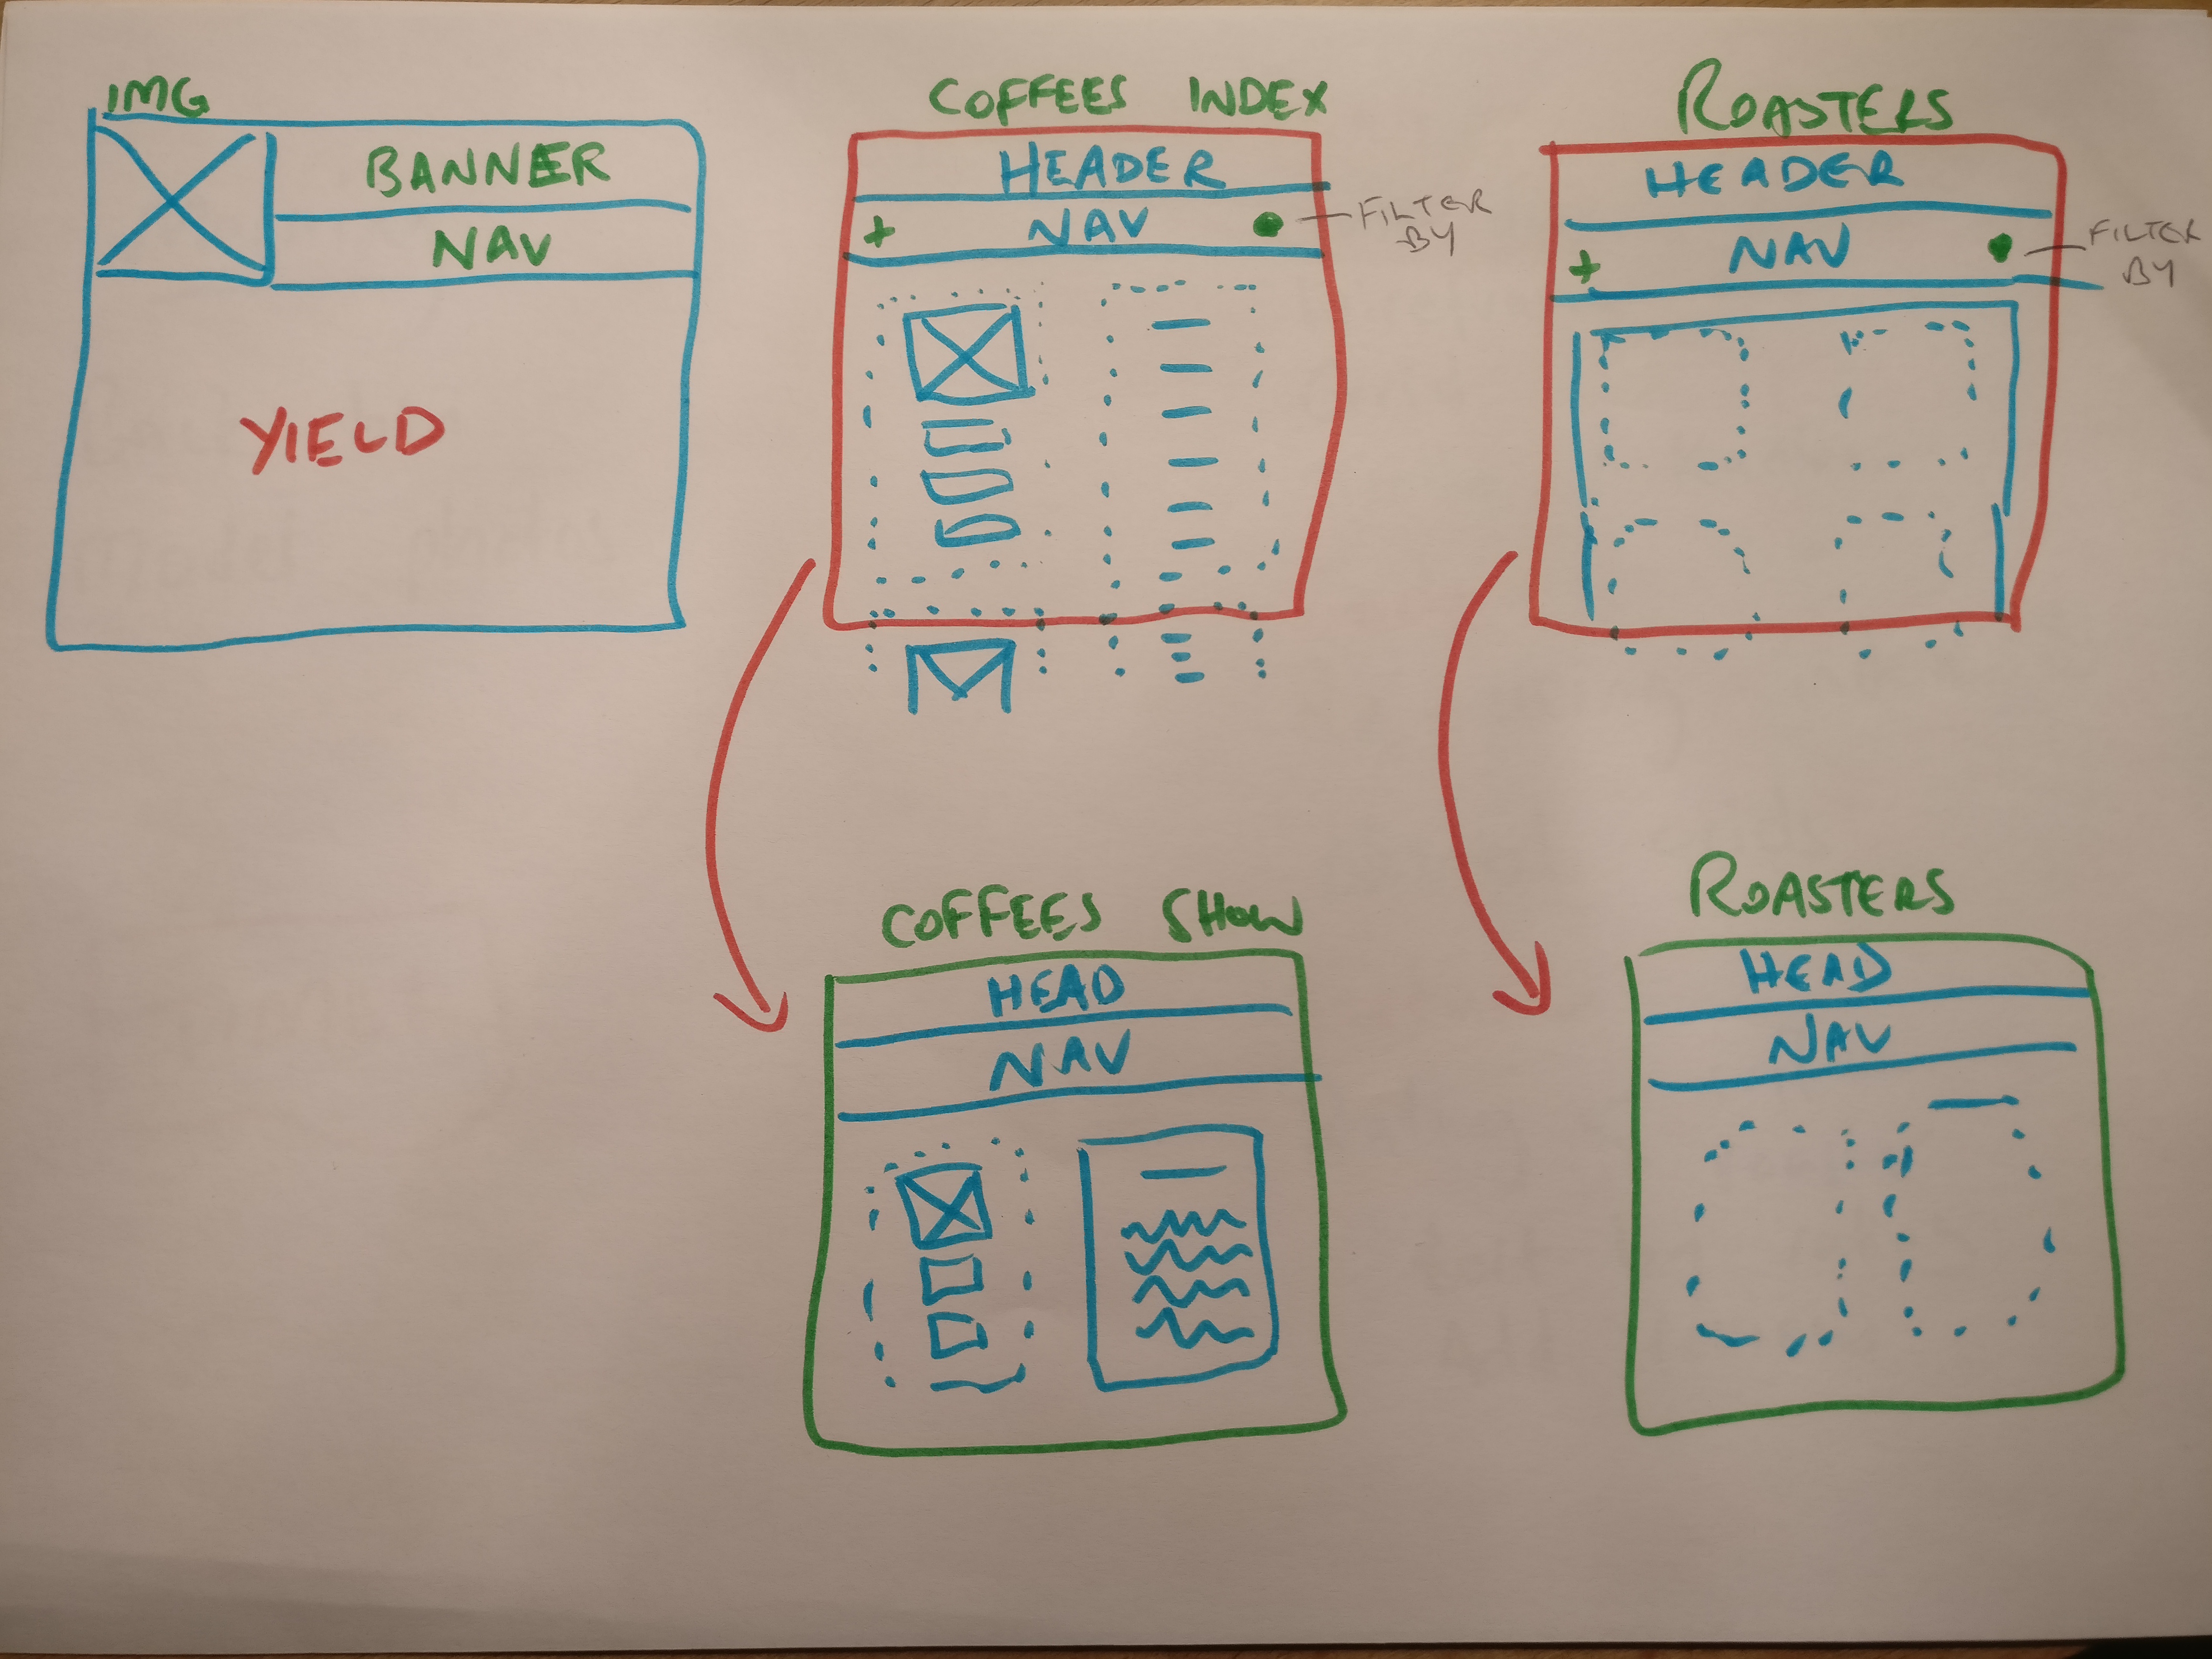 IMG
BANNER
NAV
YIELD
COFFEES INDEX
HEADER
+ NAV
FILTER
BY
ROASTERS
HEADER
+ NAV
FILTER
BY
COFFEES SHOW
HEAD
NAV
ROASTERS
HEAD
NAV